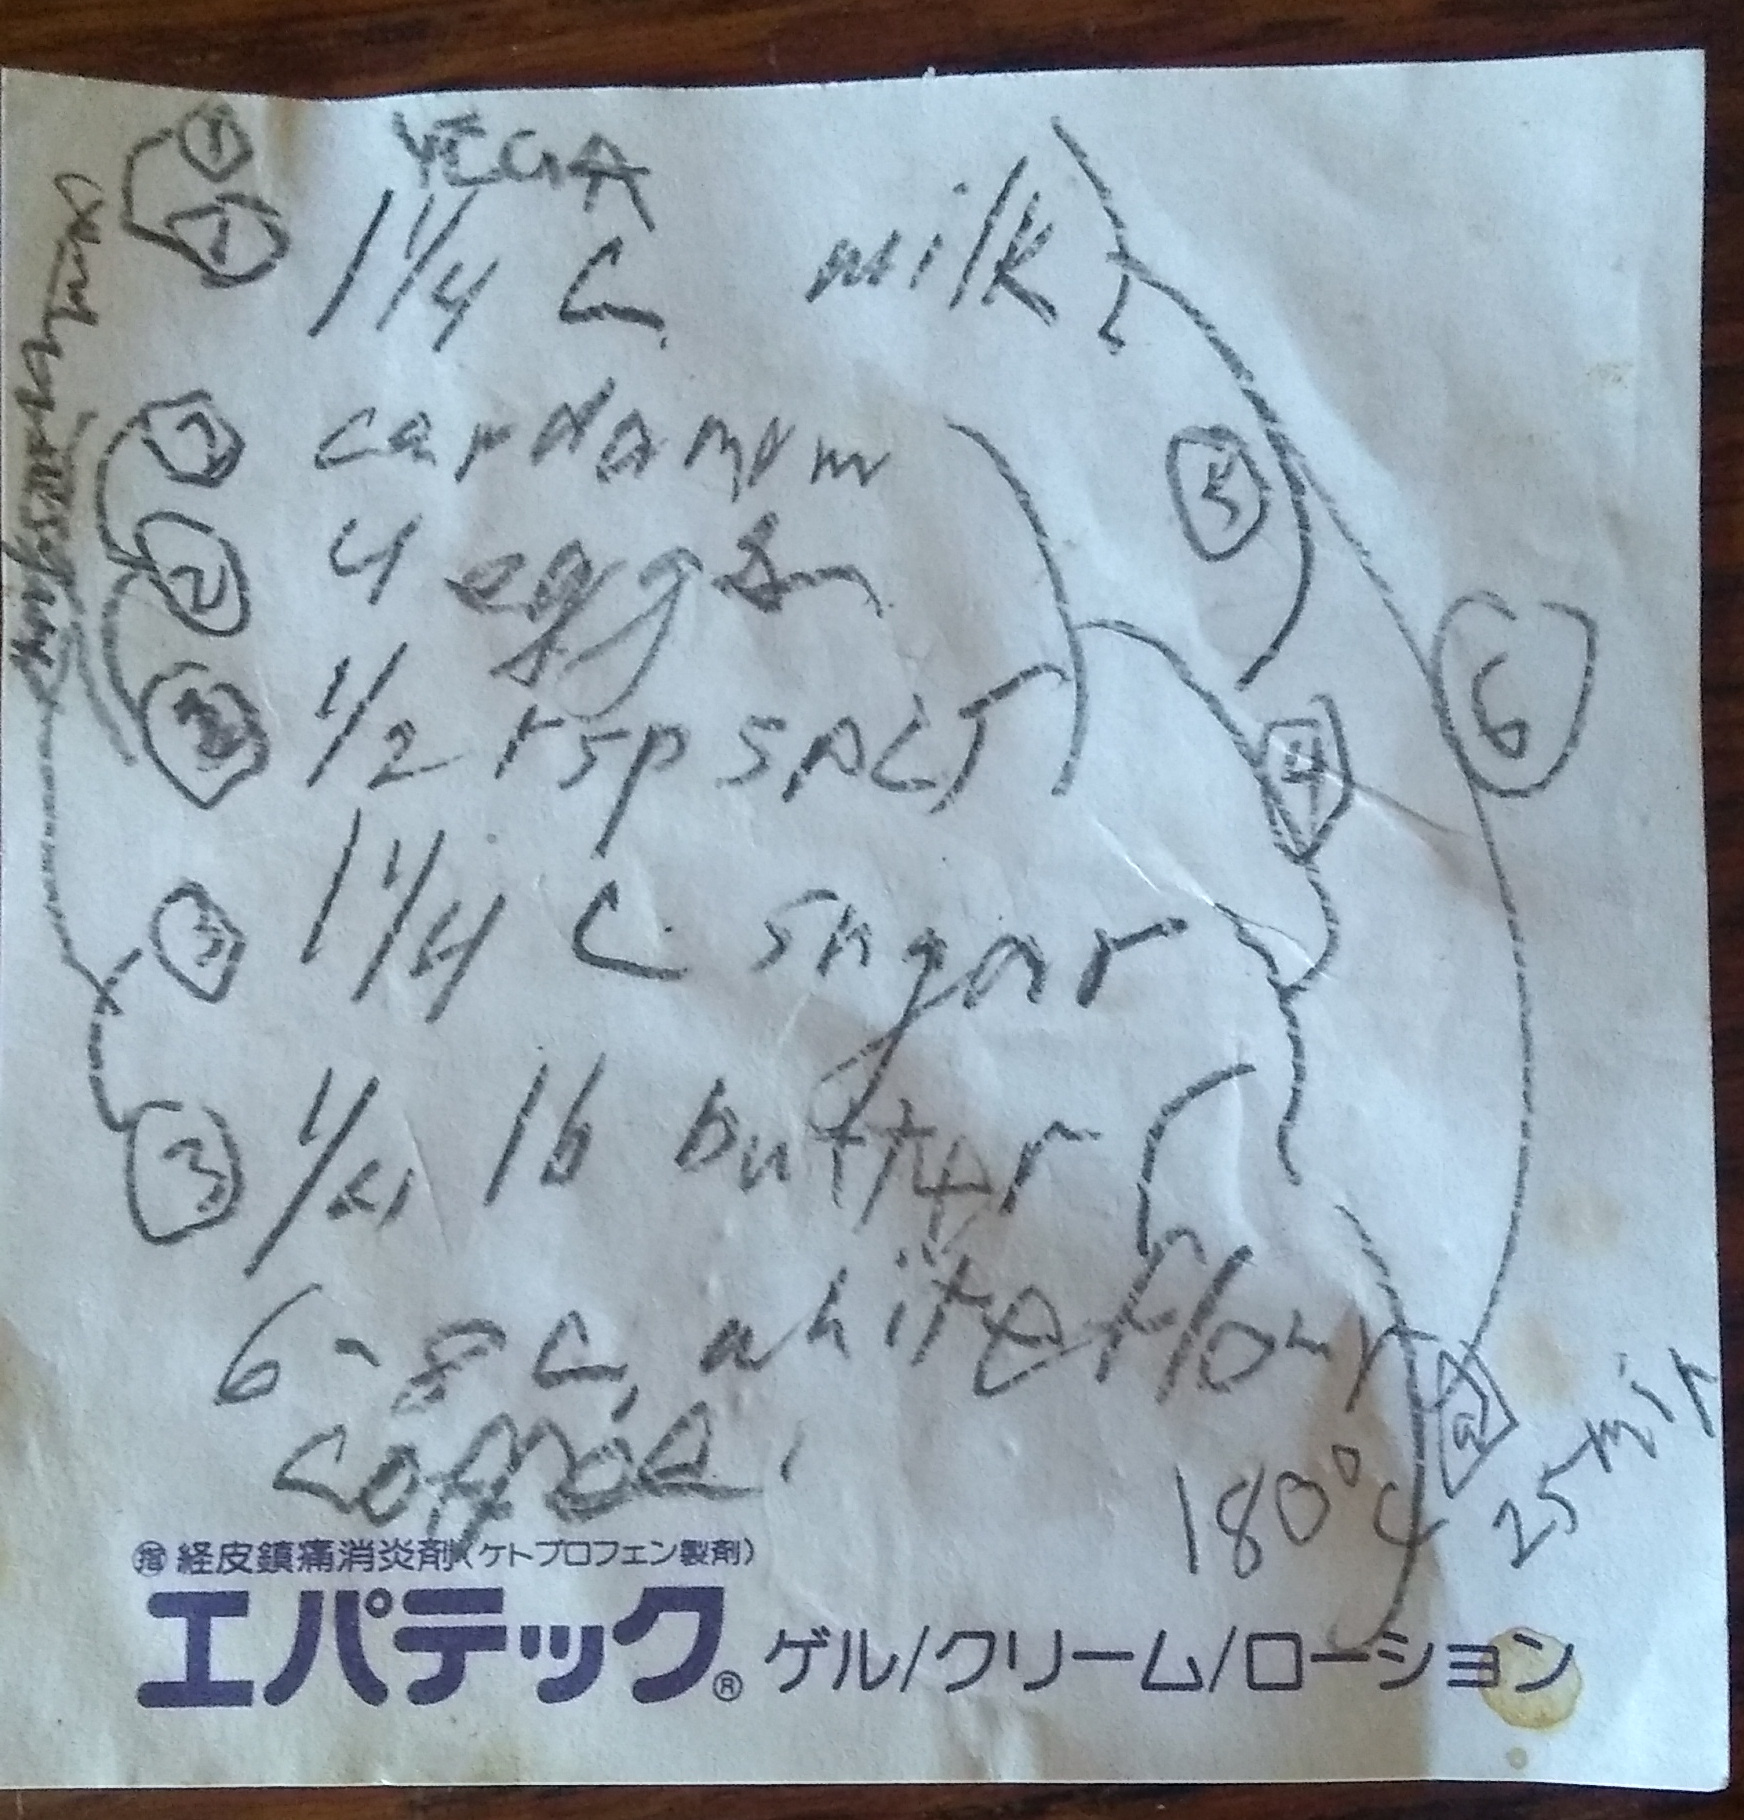 1 YEGA
1 1 1/4 C. milk
2 cardamom
2 4 eggs
1/2 tsp SALT
3 1 1/4 C sugar
3 1/2, lb butter
6-8 C, white flour
coffee,
5
6
4
180°C
25 min
㊩経皮鎮痛消炎剤(ケトプロフェン製剤)
エパテック® ゲル/クリーム/ローション